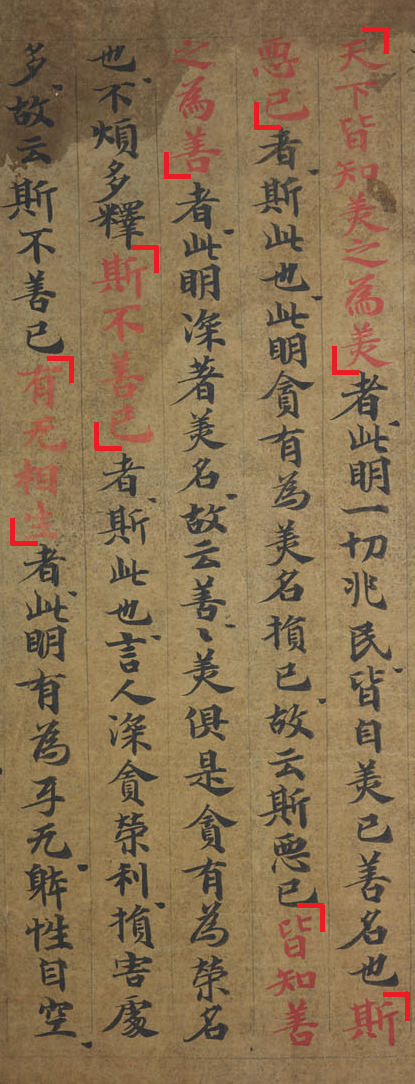 天下皆知羙之為羙者此明一切兆民皆自羙己善名也斯
悪已者斯此也此明貪有為羙名損己故云斯悪已皆知善
之為善者此明深著羙名故云善〻羙俱是貪有為榮名
也不煩多釋斯不善已者斯此也言人深貪榮利損害處
多故云斯不善已有无相生者此明有為牙无躰性自空